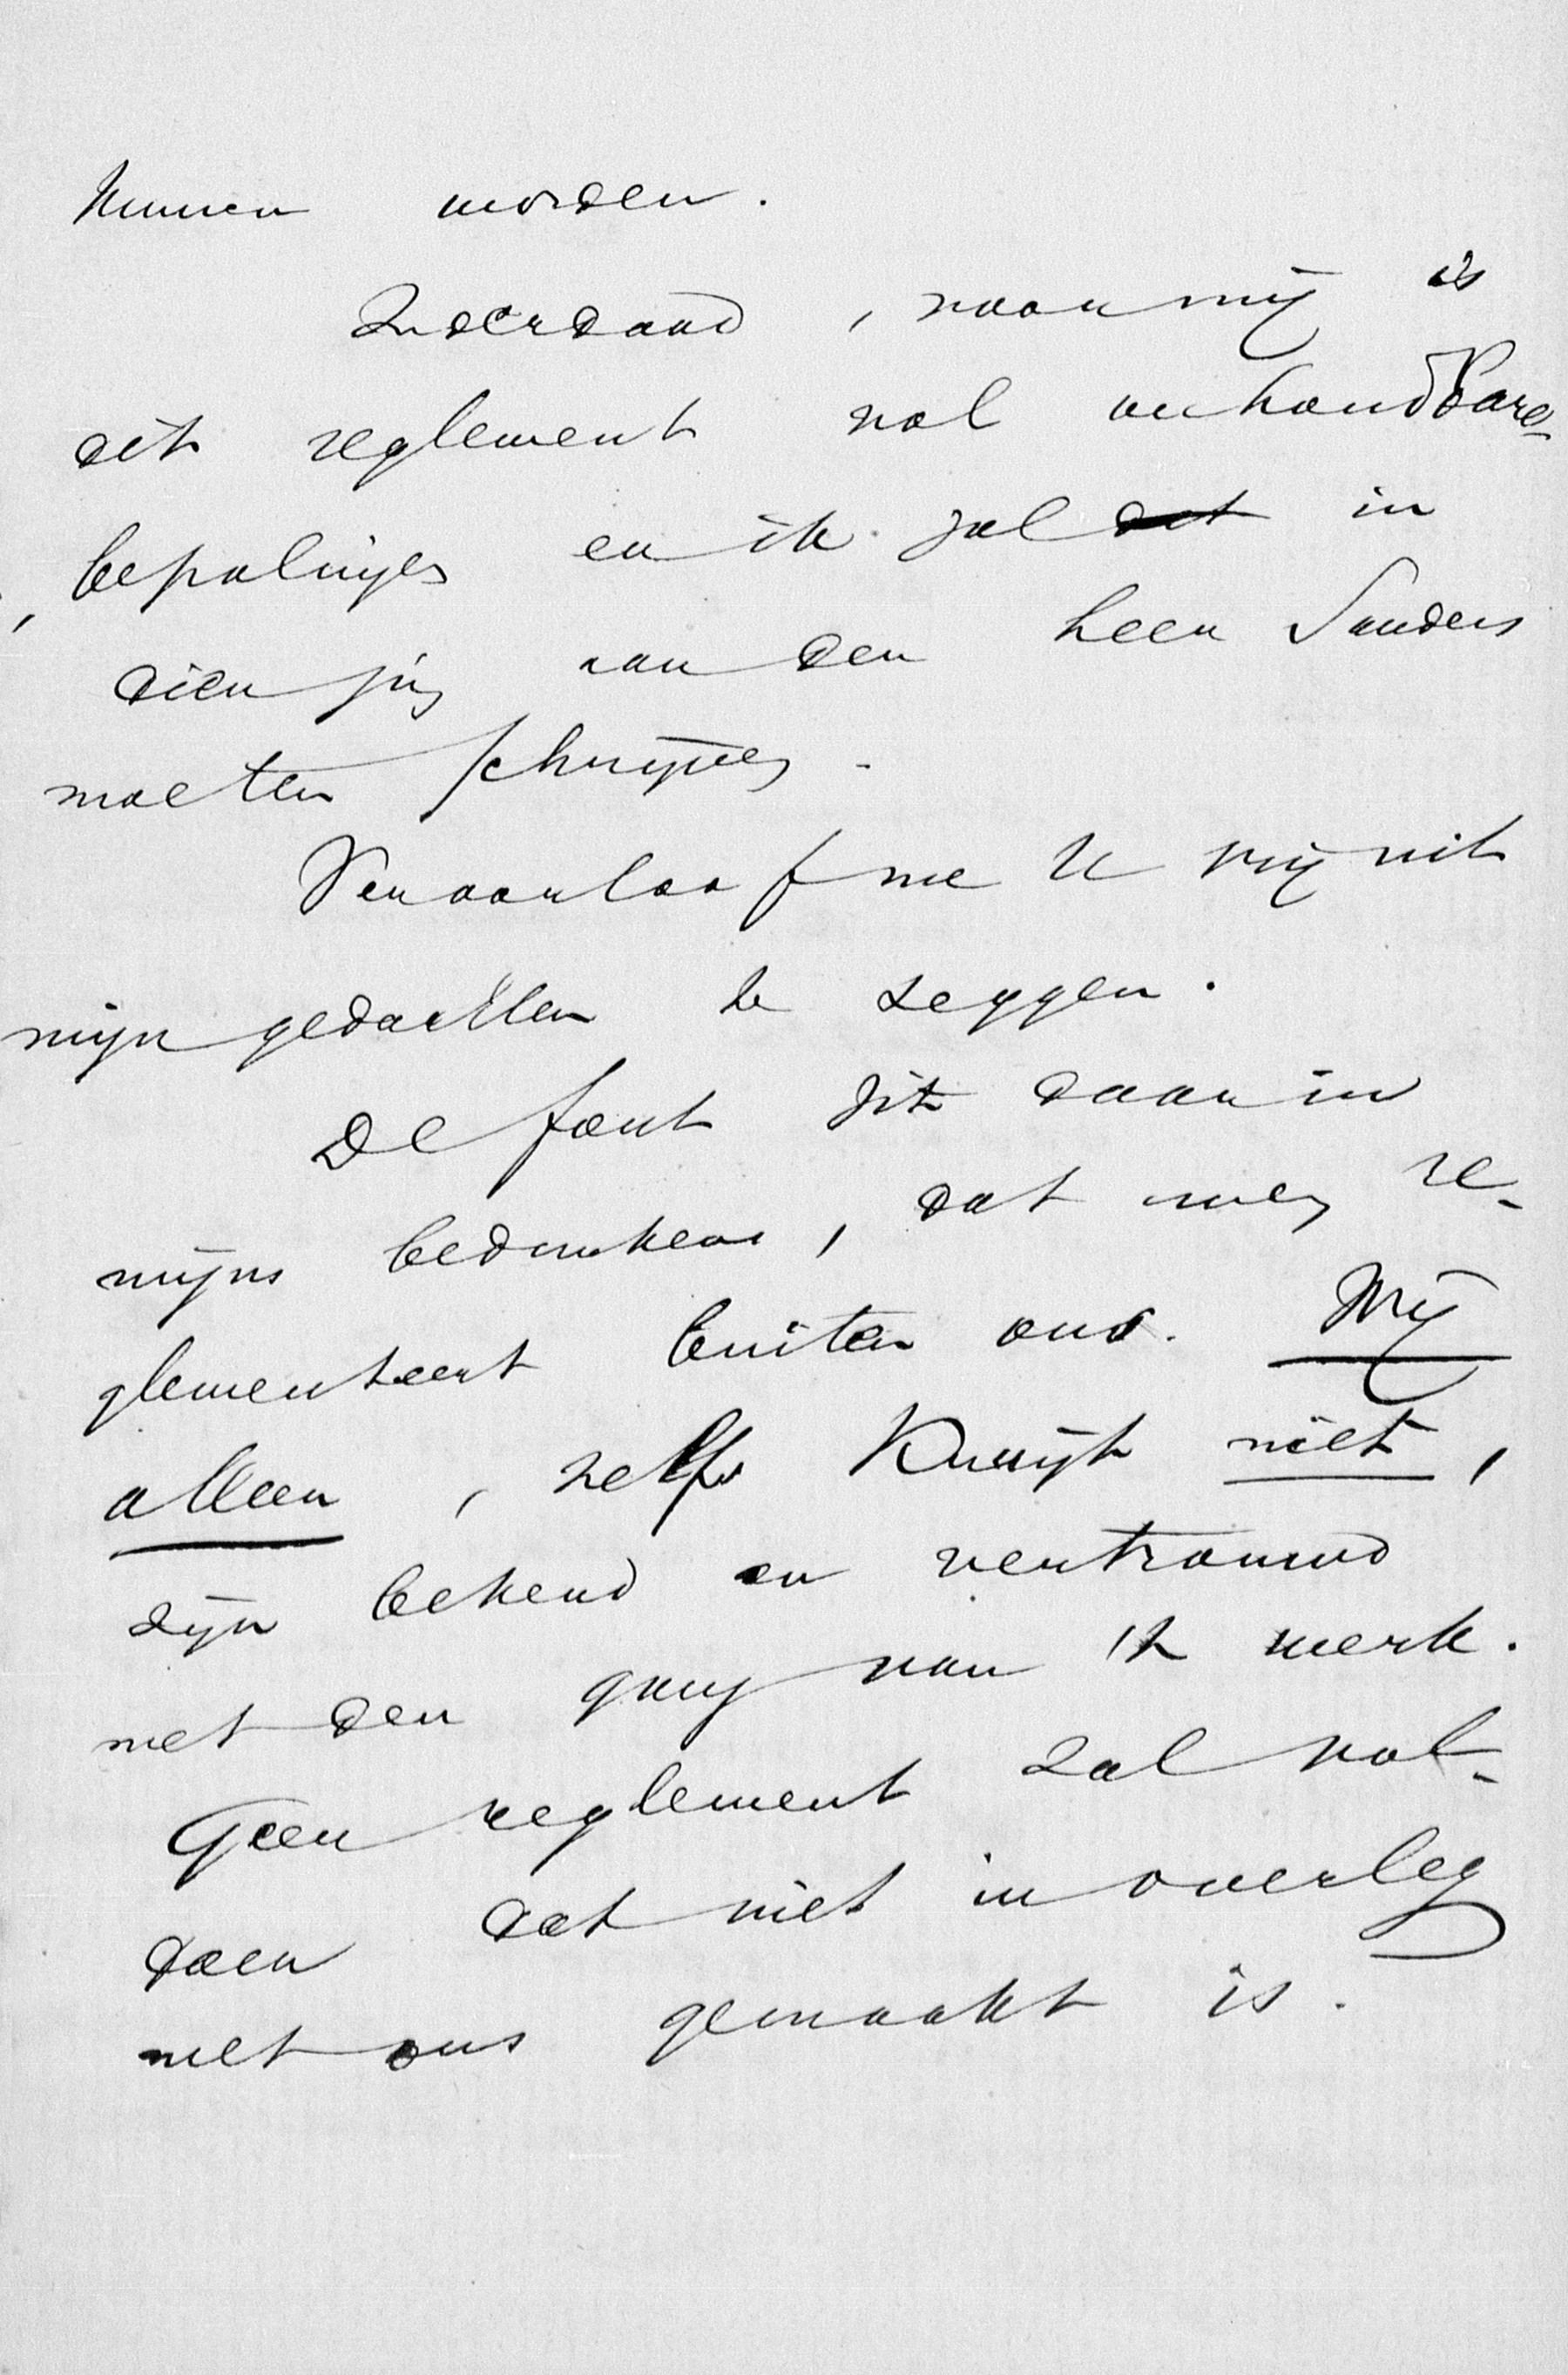 kunnen worden.
Inderdaad, voor mij is
dit reglement vol onhoudbare
bepalingen en ik zal dat in
dien zin aan den heer Sanders
moeten schrijven.
Veroorloof me U vrij uit
mijn gedachten te zeggen.
De fout zit daarin
mijns bedunkens, dat men re-
glementeert buiten ons. Wij
alleen, zelfs Kuijk niet,
zijn bekend en vertrouwd
met den gang van 't werk.
Geen reglement zal vol-
doen dat niet in overleg
met ons gemaakt is.